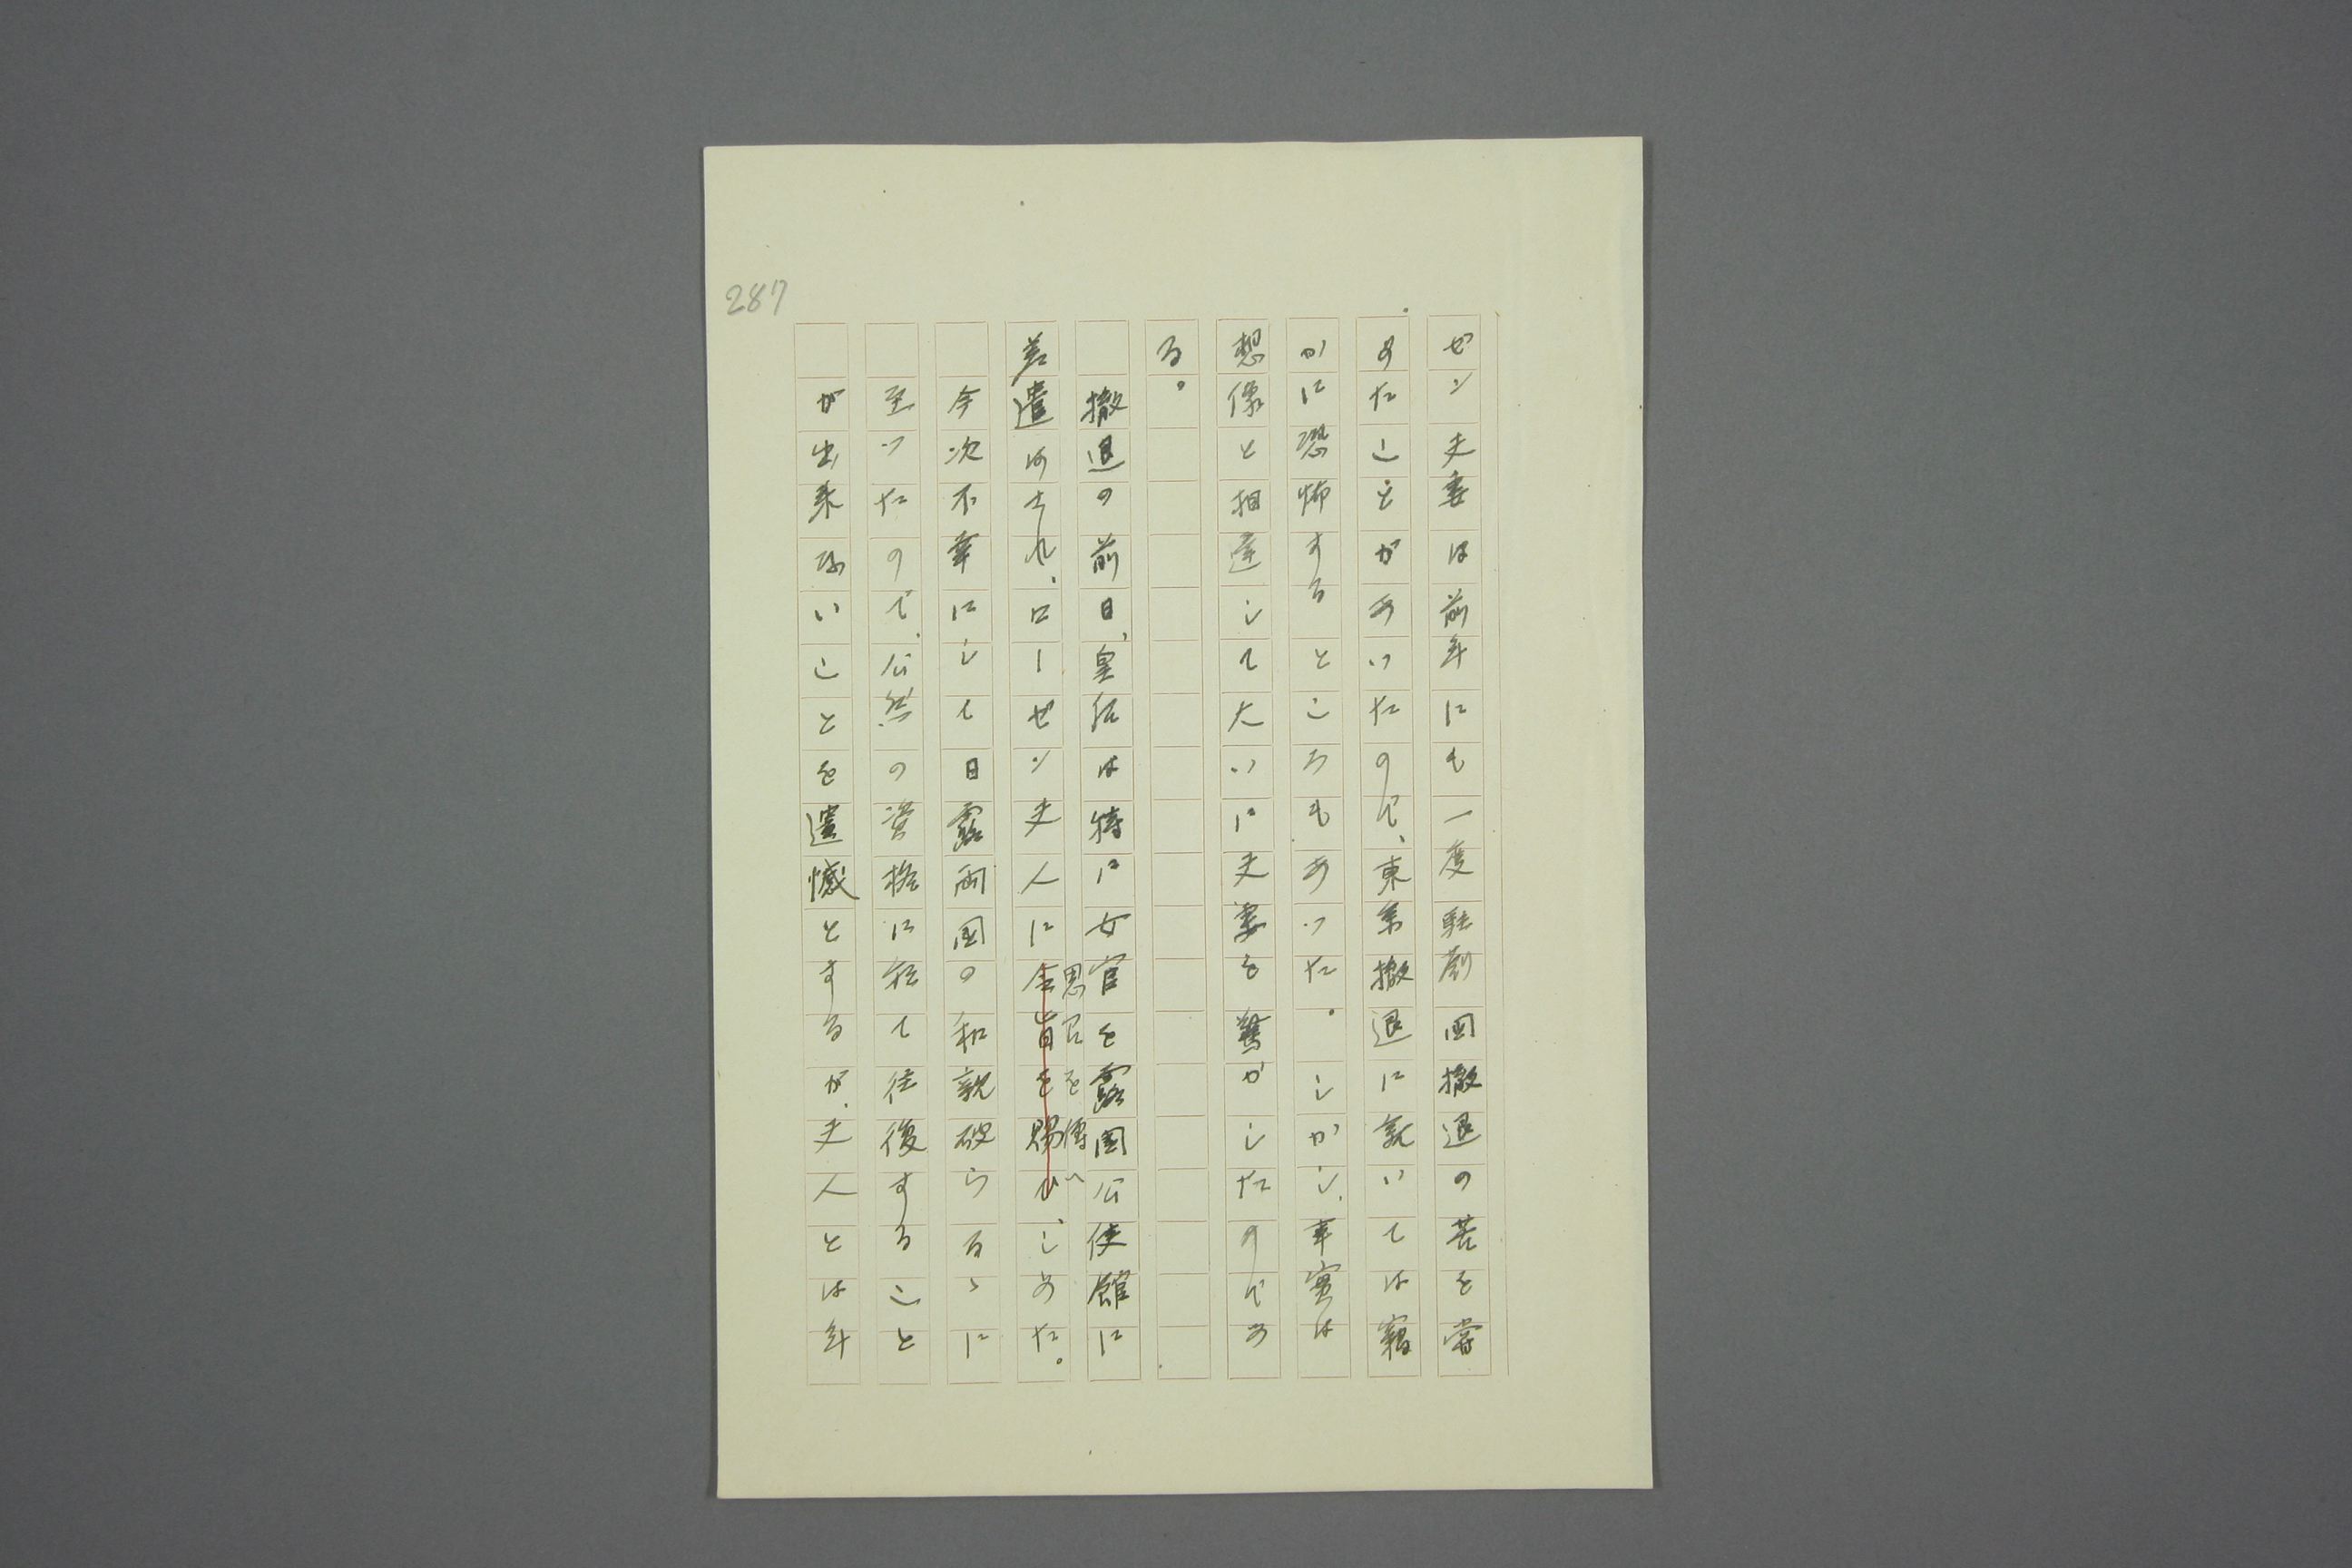 287
ゼン夫妻は前年にも一度駐劄国撤退の苦を嘗
めたことがあつたので、東京撤退に就いては竊
かに恐怖するところもあつた。しかし、事實は
想像と相違して大いに夫妻を驚かしたのであ
る。
撤退の前日、皇后は特に女官を露國公使館に
差遣なされ、ローゼン夫人に令旨を賜ひ、しめた。
思召を傳へ
今次不幸にして日露両国の和親破らるゝに
至つたので、公然の資格に於て往復すること
が出来ないことを遺憾とするが、夫人とは年